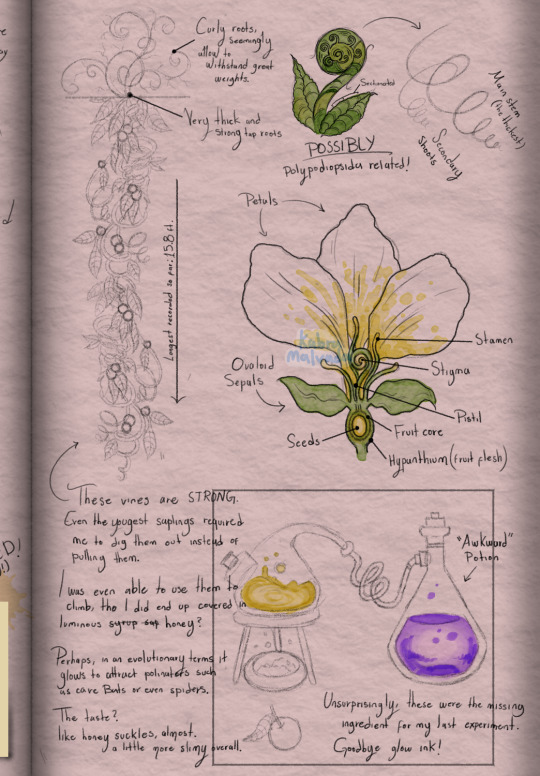 Curly roots,
seemingly
allow to
withstand great
weights.
Very thick and
strong tap roots
Longest recorded so far: 15.8 ft.
Serhonated
POSSIBLY
Polypodiopsida related!
Main stem
(the thickest)
Secondary
shoots
Petals
Stamen
Stigma
Ovaloid
Sepals
Pistil
Fruit core
Seeds
Hypanthium (fruit flesh)
These vines are STRONG.
Even the yougest saplings required
me to dig them out instead of
pulling them.
I was even able to use them to
climb, tho I did end up covered in
luminous syrup sap honey?
Perhaps, in an evolutionary terms it
glows to attract polinators such
as cave Bats or even spiders.
The taste?
like honey suckles, almost.
a little more slimy overall.
"Awkward"
Potion
Unsurprisingly, these were the missing
ingredient for my last experiment.
Goodbye glow ink!
ED!